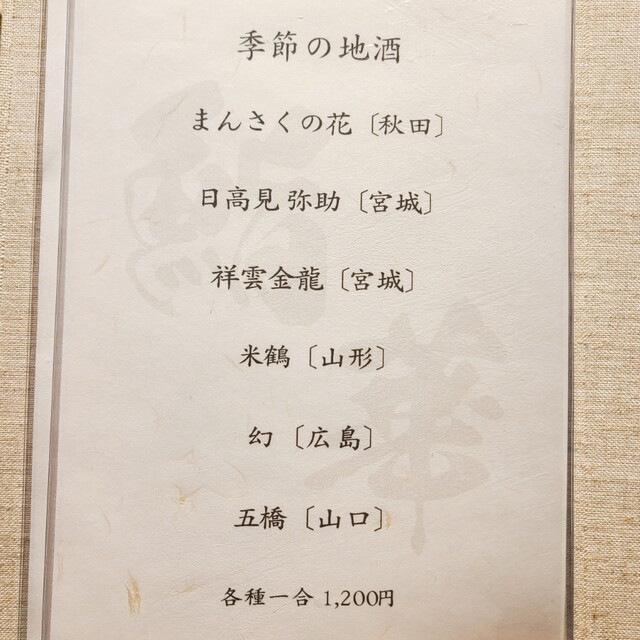 季節の地酒
まんさくの花〔秋田〕
日高見 弥助〔宮城〕
祥雲金龍〔宮城〕
米鶴〔山形〕
幻〔広島〕
五橋〔山口〕
各種一合 1,200円